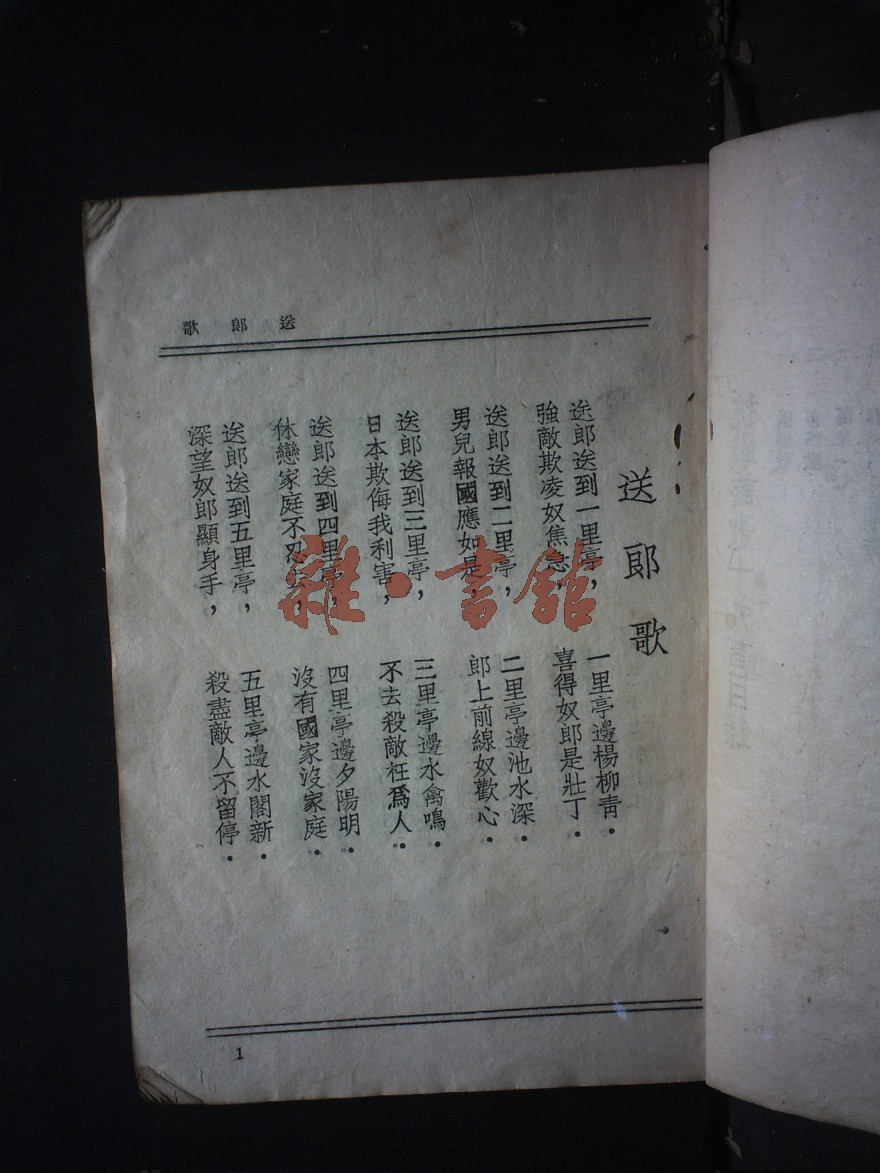 送郎歌
送郎歌
送郎送到一里亭，一里亭邊楊柳青．
強敵欺凌奴焦急，喜得奴郎是壯丁．
送郎送到二里亭，二里亭邊池水深．
男兒報國應如是，郎上前線奴歡心．
送郎送到三里亭，三里亭邊水禽鳴．
日本欺侮我利害，不去殺敵枉爲人．
送郎送到四里亭，四里亭邊夕陽明．
休戀家庭不忍，沒有國家沒家庭．
送郎送到五里亭，五里亭邊水閣新．
深望奴郎顯身手，殺盡敵人不留停．
1
雜·書館